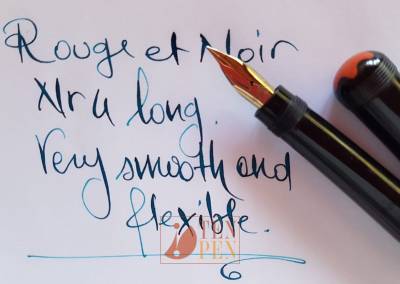 Rouge et Noir
Nr 4 long.
Very smooth and
flexible.
TEN
PEN